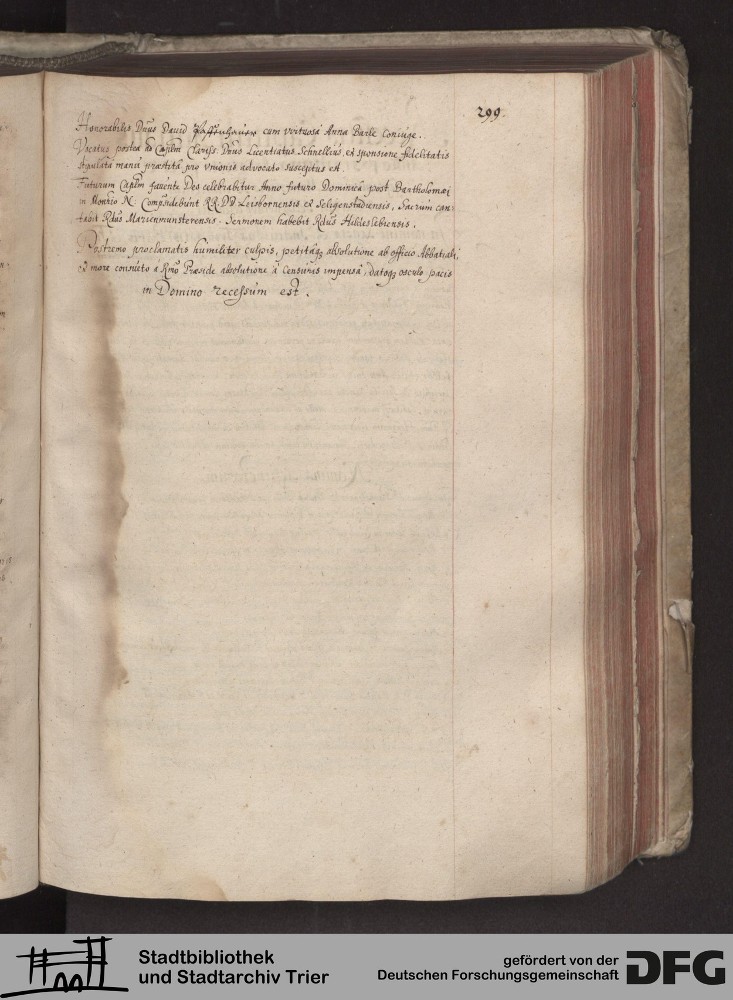 299.
Honorabilis Dnus David Pfaffenhauer cum virtuosa Anna Barle Coniuge.
Vocatus postea ad Caplm Clariss. Dnus Licentiatus Schnellius, et sponsione fidelitatis
stipulata manu præstita pro Unionis advocato susceptus est.
Futurum Caplm favente Deo celebrabitur Anno futuro Dominica post Bartholomæi
in Montrio N: Compræsidebunt RR. DD Leisbornensis et Seligenstadiensis, Sacrum can-
tabit Rdus Marienmunsterensis. Sermonem habebit Rdus Huldeslebiensis.
Postremo proclamatis humiliter culpis, petitaq absolutione ab officio Abbatiali,
et more consueto a Rmo Præside absolutione a Censuris impensa, datoq osculo pacis
in Domino recessum est.
Stadtbibliothek
und Stadtarchiv Trier
gefördert von der
Deutschen Forschungsgemeinschaft
DFG